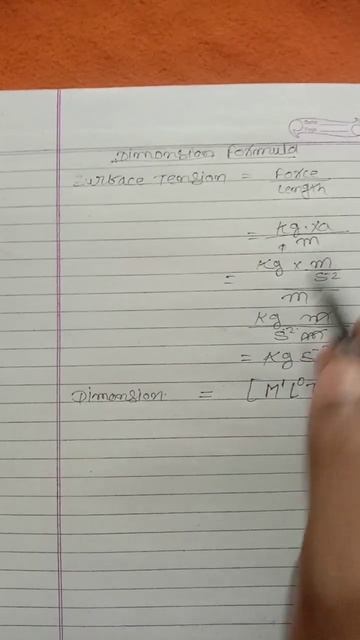 Dimonsion Formula
Surface Tension = Force
Length
= Kg × a
m
= Kg × m
s²
m
Kg m
s² m
= Kg s
Dimonsion. = [M¹L⁰T